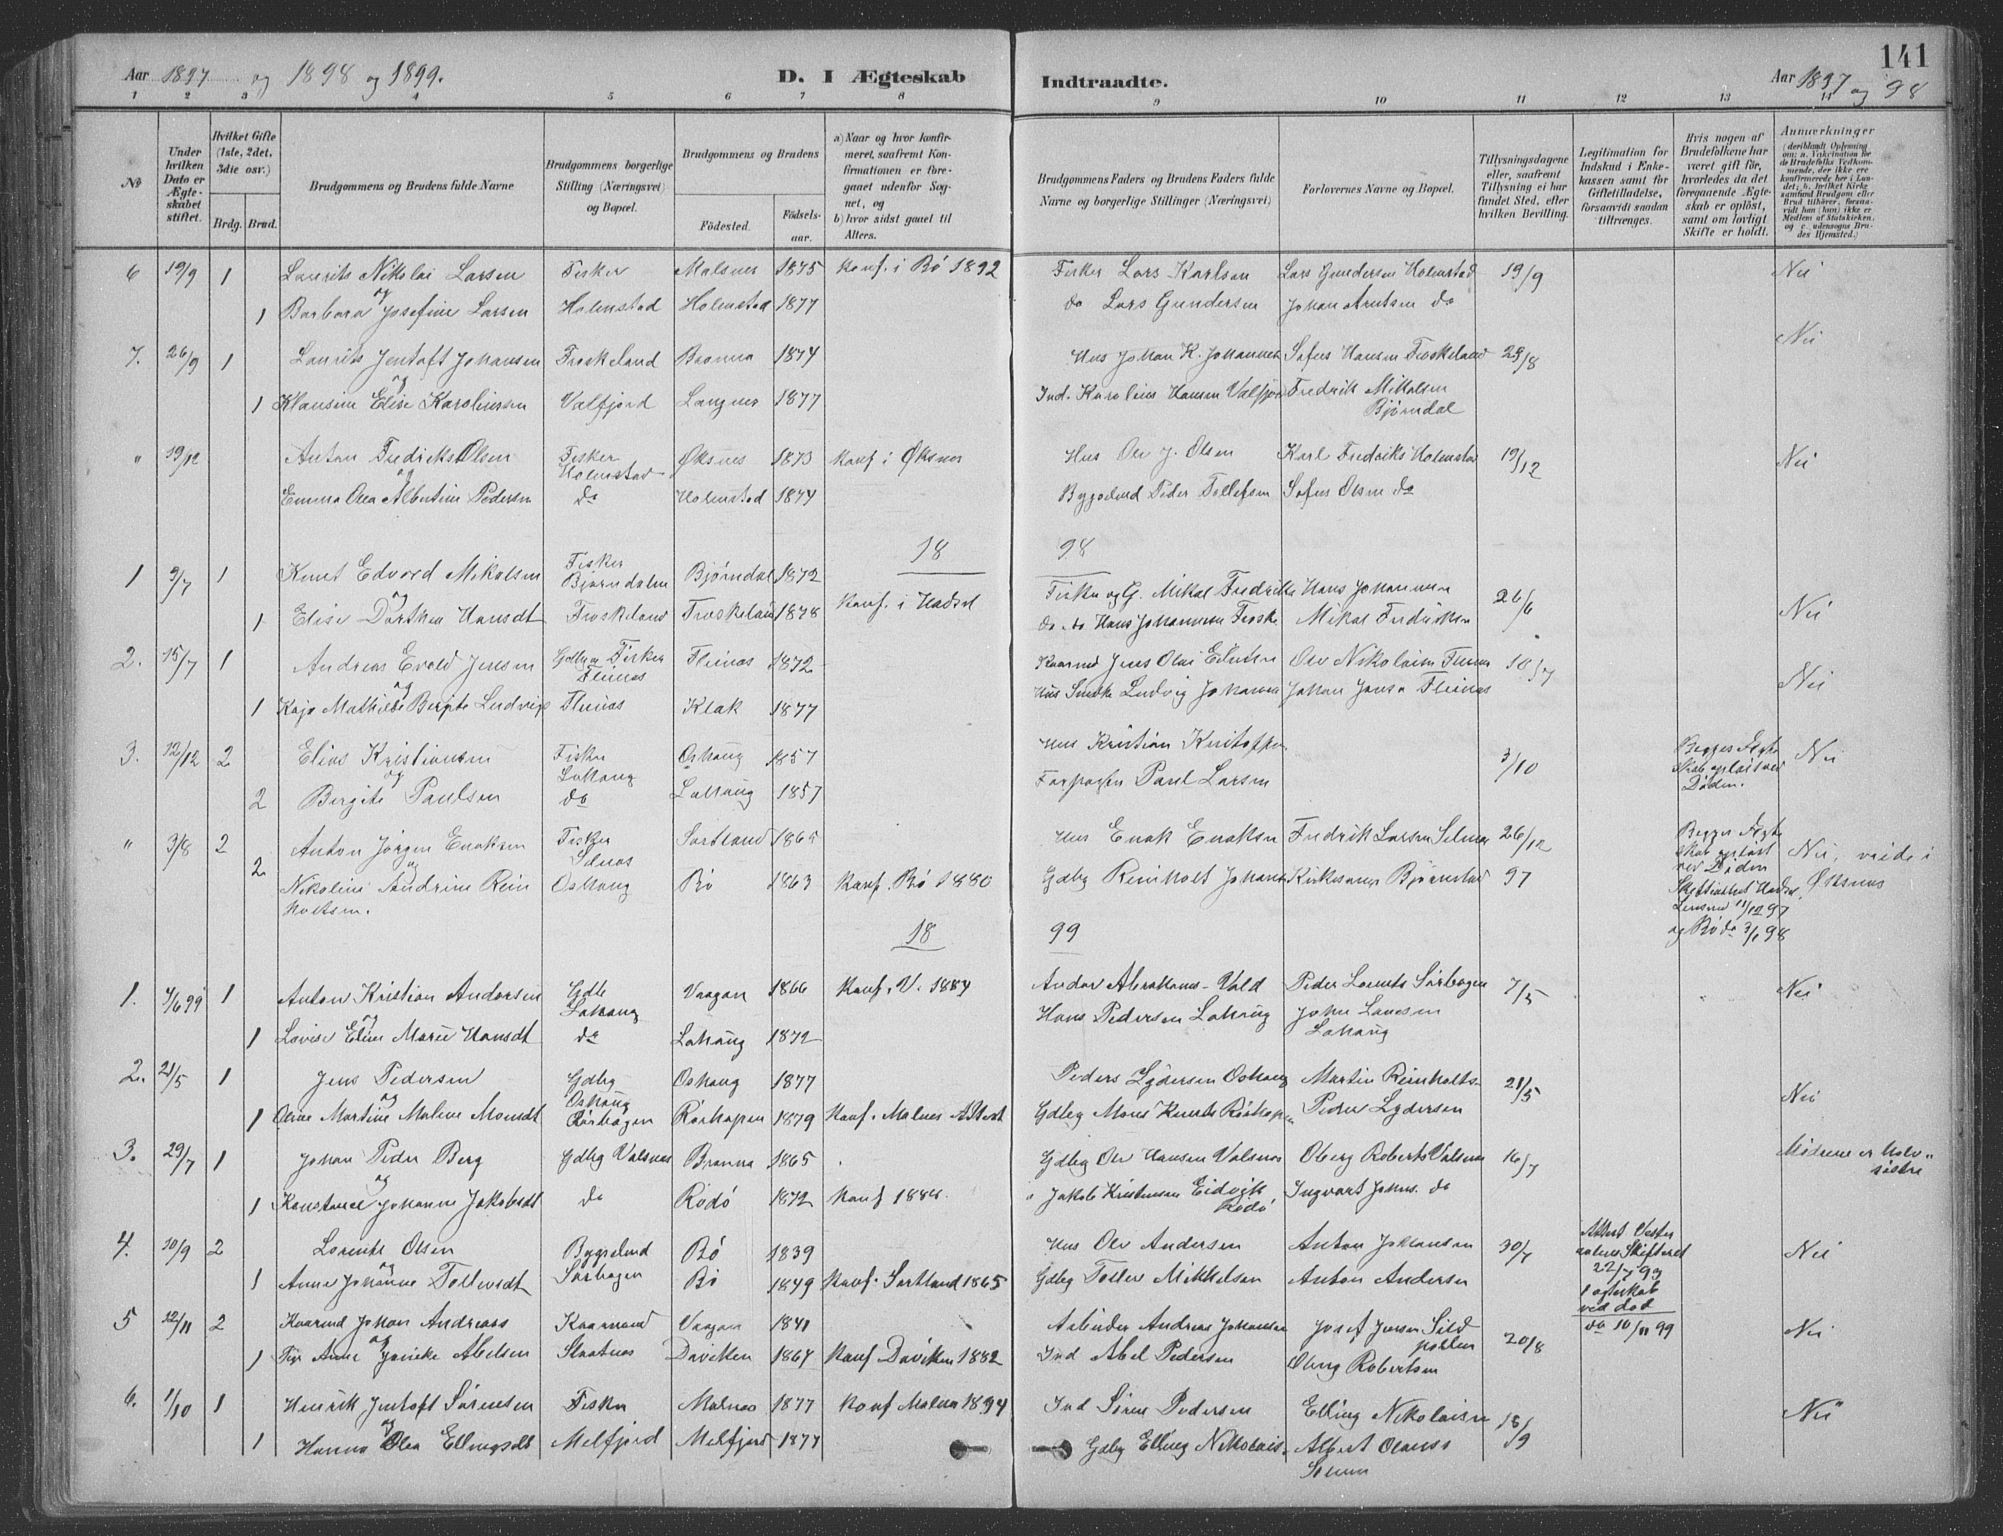 141
Aar 1897 og 1898 og 1899. D. I Ægteskab Indtraadte. Aar 1897 og 98
1 2 3 4 5 6 7 8 9 10 11 12 13 14
№
Under hvilken Dato er Ægteskabet stiftet.
Hvilket Gifte (1ste, 2det, 3die osv.)
Brdg. Brud.
Brudgommens og Brudens fulde Navne
Brudgommens borgerlige Stilling (Næringsvei) og Bopæl.
Brudgommens og Brudens
Fødested. Fødselsaar.
a) Naar og hvor konfirmeret, saafremt Konfirmationen er foregaaet udenfor Sognet, og b) hvor sidst gaaet til Alters.
Brudgommens Faders og Brudens Faders fulde Navne og borgerlige Stillinger (Næringsvei)
Forlovernes Navne og Bopæl.
Tillysningsdagene eller, saafremt Tillysning ei har fundet Sted, efter hvilken Bevilling.
Legitimation for Indskud i Enkekassen samt for Giftetilladelse, forsaavidt saadan tiltrænges.
Hvis nogen af Brudefolkene har været gift før, hvorledes da det foregaaende Ægteskab er opløst, samt om lovligt Skifte er holdt.
Anmærkninger (deriblandt Oplysning om: a. Vakcination for de Brudefolks Vedkommende, der ikke ere konfirmerede her i Landet; b. hvilket Kirkesamfund Brudgom eller Brud tilhører, forsaavidt han (hun) ikke er Medlem af Statskirken, og c. udensogns Brudes Hjemsted.)
6 19/9 1 Laurits Nikolai Larsen Fisker Malnes 1875 Konf. i Bø 1892 Fisker Lars Karlsen Lars Gundersen Holmstad 19/9 Nei
og
1 Barbara Josefine Larsen Holmstad Holmstad 1877 do Lars Gundersen Johan Arntsen do
7. 26/9 1 Laurits Jentoft Johansen Froskeland Bronna 1874 Hus Johan K. Johannes Sofus Hansen Froskeland 29/8 Nei
og
1 Klausine Elise Karoliussen Valfjord Langnes 1877 Ind. Karolius Hansen Valfjord Fredrik Mikalsen
Bjørndal
" 19/12 Anton Fredriks Olsen Fisker Holmstad Øksnes 1873 Konf i Øksnes Hus Ole J. Olsen Karl Fredriks Holmstad 19/12 Nei
og
Emma Olea Albertine Pedersen do Holmstad 1874 Bygselmd Peder Tollefsen Sofus Olsen do
18 98
1 9/7 1 Knut Edvard Mikalsen Fisker Bjørndalen Bjørndal 1872 Fisker og G. Mikal Fredrikse Hans Johannesen 26/6 Nei
og
1 Elise Dorthea Hansdt Froskeland Froskeland 1878 Konf. i Hadsel do do Hans Johannesen Froske Mikal Fredriksen
2. 15/7 1 Andreas Evald Jensen Gdbg Fisker Fleines Fleines 1872 Kaarmd Jens Olai Edisen Ole Nikolaisen 10/7 Nei
og
1 Kaja Mathilde Bergitte Ludvigs Fleines Klak 1877 Hus Smeke Ludvig Johannes Johan Jensen Fleines
3. 12/12 2 Elias Kristiansen Fisker Lahaug Oshaug 1857 Hus Kristian Kristoffer 3/10 Begges Ægteskab opløst ved Døden. Nei
og
2 Bergite Paulsen do Lahaug 1857 Forpagter Paul Larsen
" 3/8 2 Anton Jørgen Enoksen Fisker Selnes Sortland 1865 Hus Enok Enoksen Fredrik Larsen Selnes 26/12 Begges Ægteskab opløst ved Døden Nei, viede i Øksnes
og
2 Nikoline Sandrine Reinholtsen. Oshaug Bø 1863 Konf. Bø 1880 Gdbg Reinholt Johans Kirkesanger Bjørnstad 97 Skifteattest Hadsel Lensmd 11/12 97 og Bø do 3/1 98
18 99
1. 4/6 99 1 Anton Kristian Andorsen Gdb Lahaug Vaagan 1866 Konf. V. 1884 Andor Abrahams - Vold Peder Lorents Sørbogen 7/5 Nei
og
1 Lovise Eline Marie Hansdt do Lahaug 1872 Hans Pedersen Lahaug John Larsen
Lahaug
2. 21/5 1 Jens Pedersen Gdbg Oshaug Oshaug 1877 Peders Lydersen Oshaug Martin Reinholts- 21/5 Nei
og
1 Oline Martine Malene Monsdt Rørhopen 1879 Konf. Malnes Attest Gdbg Mons Knuts Rørhopen Peder Lydersen
3. 29/7 1 Johan Peder Berg Gdbg Valsnes Bronna 1865 Gdbg Ole Hansen Valsnes Oberg Roberts Valsnes 16/7 Mødrene er halvsøstre
og
1 Konstanse Johanne Jakobsdt do Rødø 1872 Konf 1888. " Jakob Kristensen Eidvik, Rødø Ingvart Johns. do
4. 10/9 2 Lorents Olsen Bygselmd Sørbogen Bø 1839 Hus Ole Andersen Anton Johansen 30/7 Attest Vesteraalens Skifteret 22/7 93 1 ægteskab ved død Nei
og
1 Anna Johanne Tollevsdt Bø 1849 Konf. Sortland 1865 Gdbg Tollev Mikkelsen Anton Andersen
5 12/11 2 Kaarmd Johan Andreas Kaarmand Vaagan 1841 Arbeider Andreas Johansen Josef Jensen Sildpollen 20/8 do 10/11 99 Nei
og
1 Pige Anne Jonike Abelsen Skaatnes Daviken 1864 Konf Daviken 1882 Ind Abel Pedersen Oberg Robertsen
6. 1/10 1 Henrik Jentoft Sørensen Fisker Malnes 1877 Konf Malnes 1894 Ind Søren Pedersen Elling Nikolaisen 18/9 Nei
og
1 Hanna Olea Ellingsdt Melfjord Melfjord 1877 Gdbg Elling Nikolais- Albert Olauss